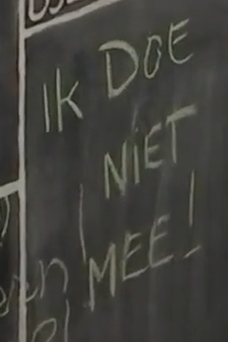 IK DOE
NIET
MEE!